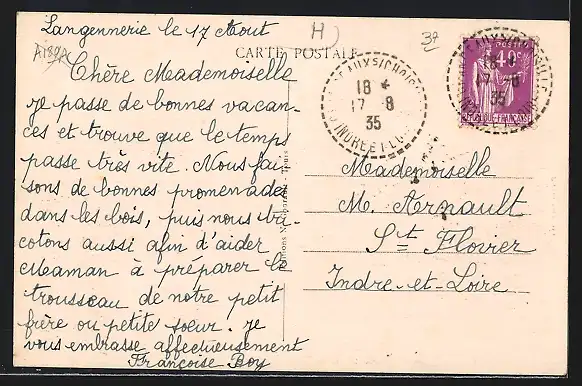 Langennerie le 17 Août
H
37
A189A
CARTE POSTALE
Chère Mademoiselle
je passe de bonnes vacan-
ces et trouve que le temps
passe très vite. Nous fai
sons de bonnes promenades
dans les bois, puis nous tri-
cotons aussi afin d'aider
Maman à préparer le
trousseau de notre petit
frère ou petite soeur. je
vous embrasse affectueusement
Françoise Boy
18 *
17 - 8
35
INDRE ET L
POSTES
40c
18 *
17 - 8
35
REPUBLIQUE FRANÇAISE
Mademoiselle
M. Arnault
St Flovier
Indre-et-Loire